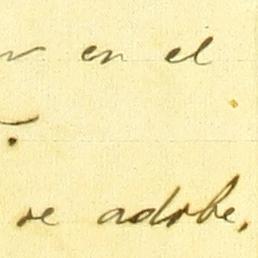 en el
se adobe,